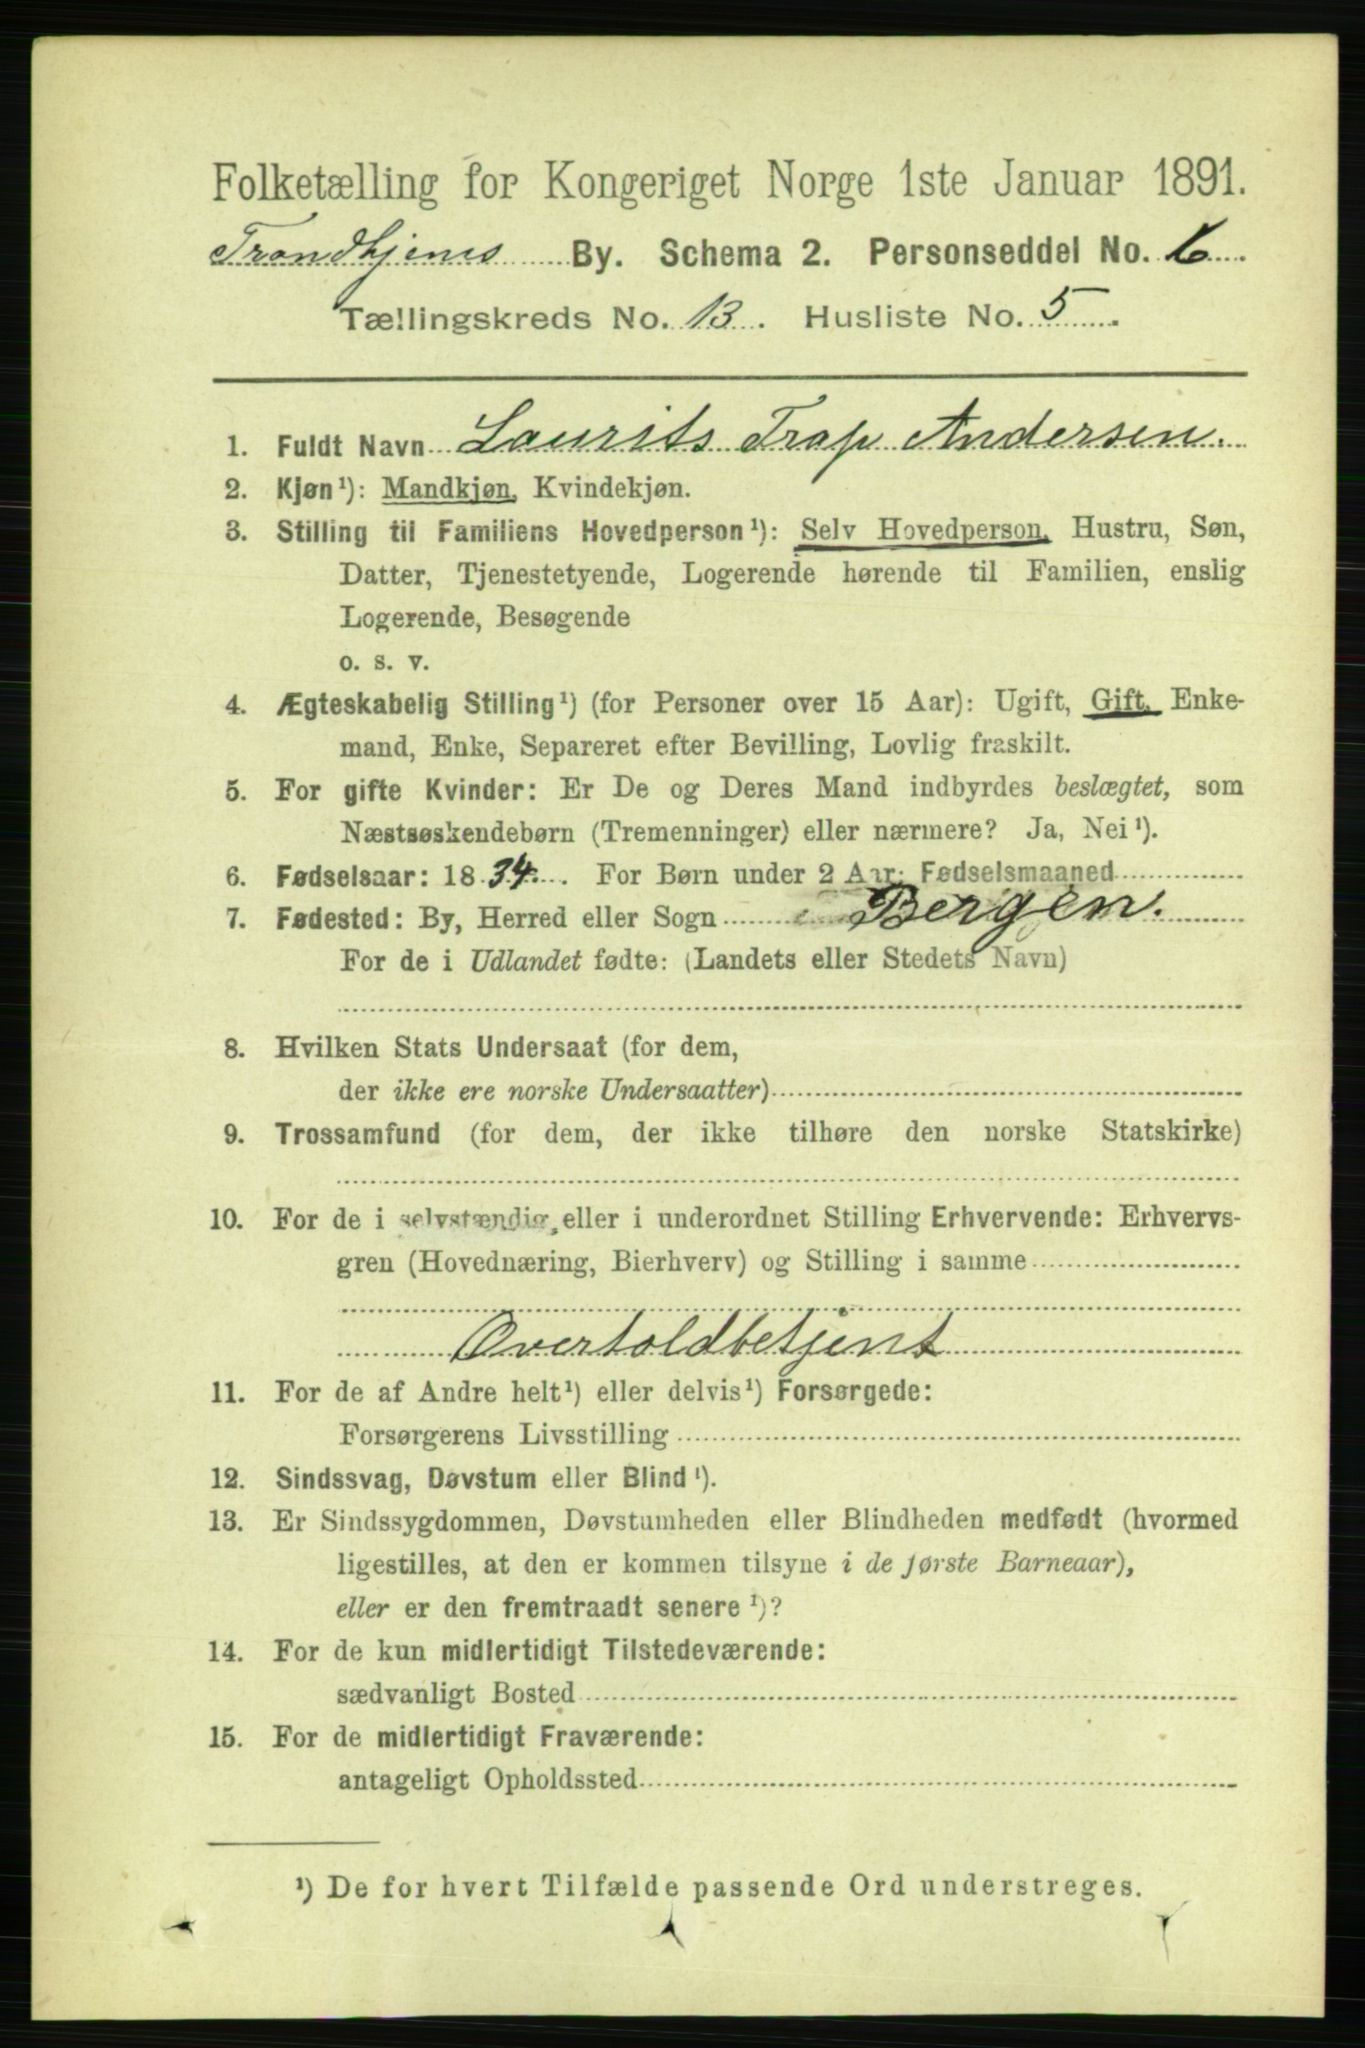 Folketælling for Kongeriget Norge 1ste Januar 1891.
Trondhjems By. Schema 2. Personseddel No. 6
Tællingskreds No. 13. Husliste No. 5.
1. Fuldt Navn Laurits Trap Andersen.
2. Kjøn¹): Mandkjøn, Kvindekjøn.
3. Stilling til Familiens Hovedperson¹): Selv Hovedperson, Hustru, Søn,
Datter, Tjenestetyende, Logerende hørende til Familien, enslig
Logerende, Besøgende
o. s. v.
4. Ægteskabelig Stilling¹) (for Personer over 15 Aar): Ugift, Gift, Enke-
mand, Enke, Separeret efter Bevilling, Lovlig fraskilt.
5. For gifte Kvinder: Er De og Deres Mand indbyrdes beslægtet, som
Næstsøskendebørn (Tremenninger) eller nærmere? Ja, Nei¹).
6. Fødselsaar: 1834. For Børn under 2 Aar: Fødselsmaaned
7. Fødested: By, Herred eller Sogn Bergen.
For de i Udlandet fødte: (Landets eller Stedets Navn)
8. Hvilken Stats Undersaat (for dem,
der ikke ere norske Undersaatter)
9. Trossamfund (for dem, der ikke tilhøre den norske Statskirke)
10. For de i selvstændig eller i underordnet Stilling Erhvervende: Erhvervs-
gren (Hovednæring, Bierhverv) og Stilling i samme
Overtoldbetjent
11. For de af Andre helt¹) eller delvis¹) Forsørgede:
Forsørgerens Livsstilling
12. Sindssvag, Døvstum eller Blind¹).
13. Er Sindssygdommen, Døvstumheden eller Blindheden medfødt (hvormed
ligestilles, at den er kommen tilsyne i de første Barneaar),
eller er den fremtraadt senere¹)?
14. For de kun midlertidigt Tilstedeværende:
sædvanligt Bosted
15. For de midlertidigt Fraværende:
antageligt Opholdssted
¹) De for hvert Tilfælde passende Ord understreges.